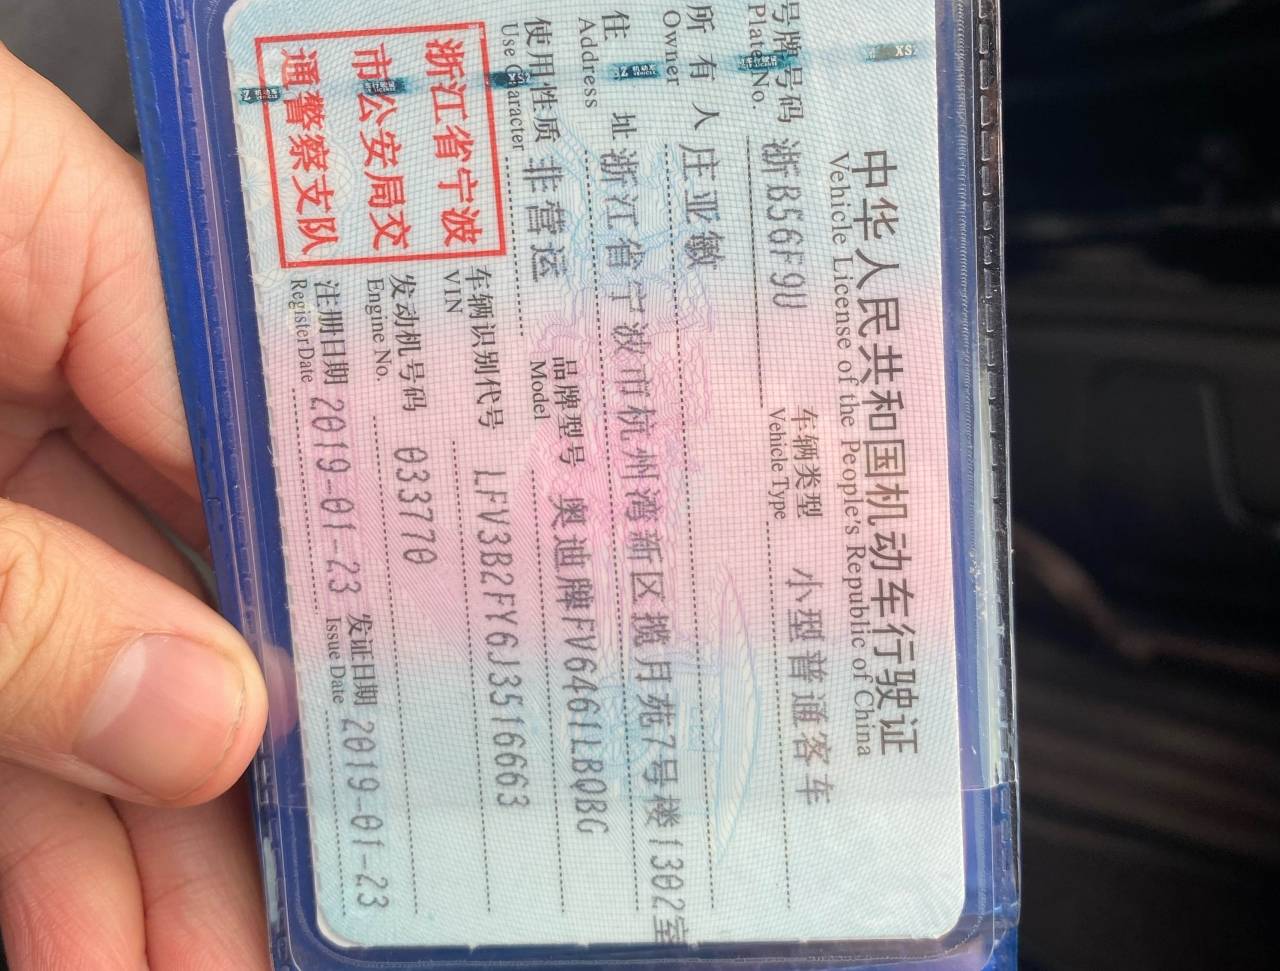 中华人民共和国机动车行驶证
Vehicle License of the People's Republic of China
号牌号码 浙B56F9U 车辆类型 小型普通客车
Plate No. Vehicle Type
所有人 庄亚敏
Owner
住址 浙江省宁波市杭州湾新区揽月苑7号楼1302室
Address
使用性质 非营运 品牌型号 奥迪牌FV6461LBQBG
Use Character Model
浙江省宁波
市公安局交
通警察支队
车辆识别代号 LFV3B2FY6J3516663
VIN
发动机号码 033770
Engine No.
注册日期 2019-01-23 发证日期 2019-01-23
Register Date Issue Date